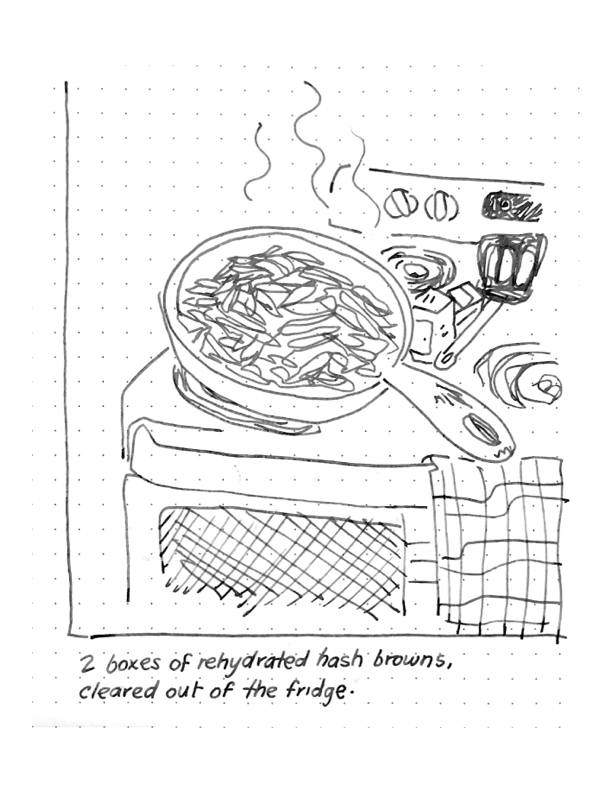 2 boxes of rehydrated hash browns,
cleared out of the fridge.